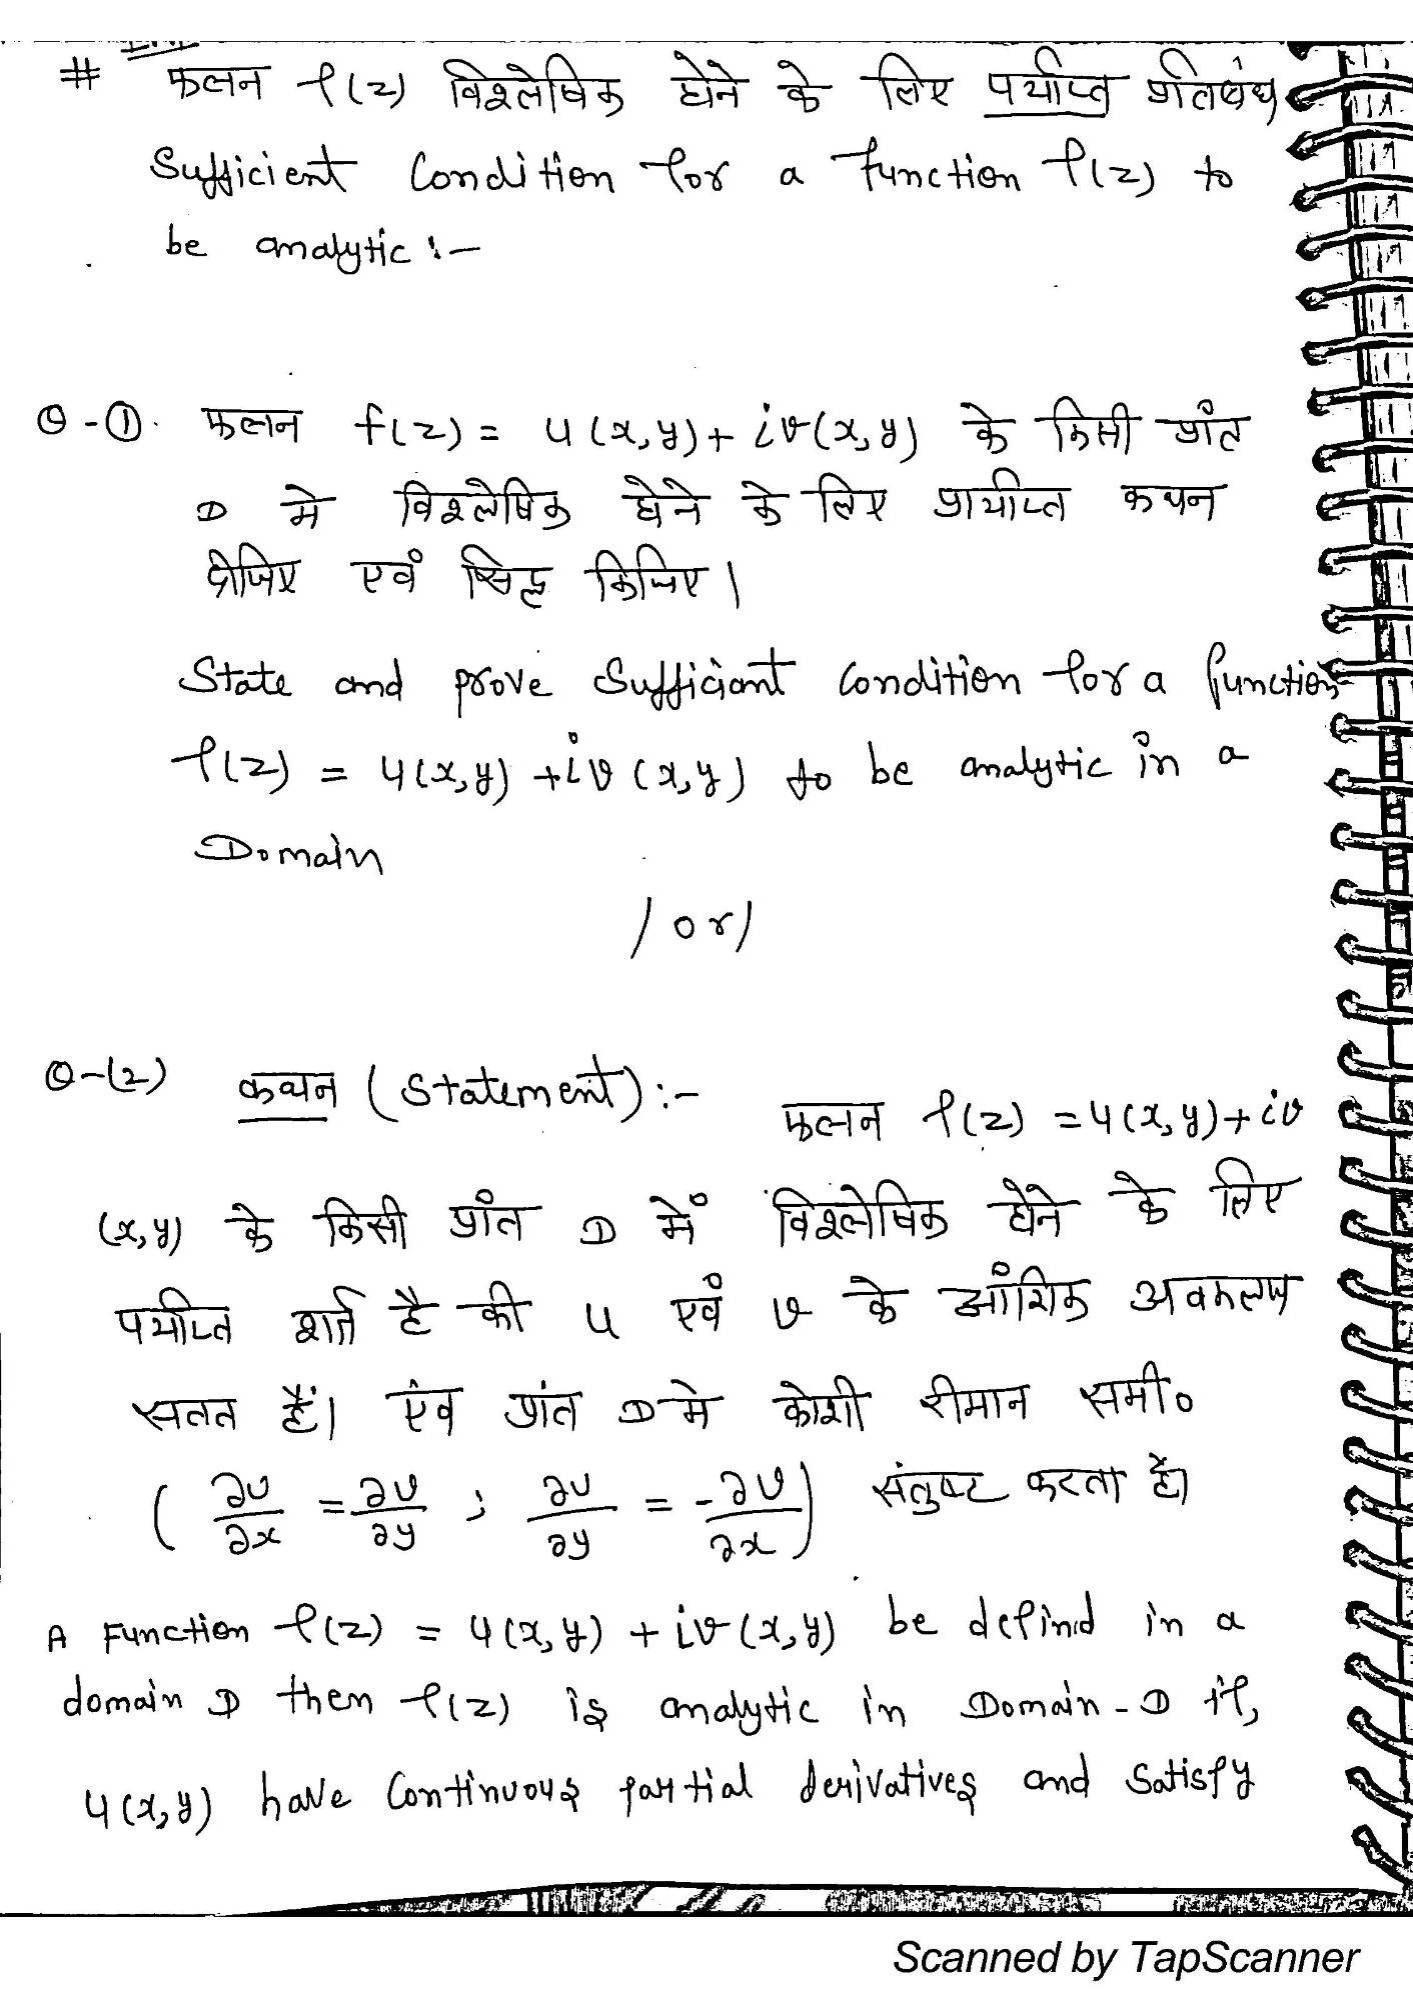 # फलन f(z) विश्लेषिक होने के लिए पर्याप्त प्रतिबंध
Sufficient Condition for a function f(z) to
be analytic :-
Q-①. फलन f(z) = u(x,y)+ iv(x,y) के किसी प्रांत
D मे विश्लेषिक होने के लिए प्रार्याप्त कथन
दीजिए एवं सिद्ध किजिए।
State and prove Sufficiant Condition for a function
f(z) = u(x,y) +iv(x,y) to be analytic in a
Domain
/or/
Q-(2) कथन (Statement):- फलन f(z) =u(x,y)+iv
(x,y) के किसी प्रांत D में विश्लेषिक होने के लिए
पर्याप्त शर्त है की u एवं v के आंशिक अवकलज
सतत हैं। एंव प्रांत D मे कोशी रीमान समी०
( ∂u/∂x = ∂v/∂y ; ∂u/∂y = -∂v/∂x ) संतुष्ट करता है।
A Function f(z) = u(x,y) + iv(x,y) be defind in a
domain D then f(z) is analytic in Domain-D if,
u(x,y) have Continuous partial derivatives and Satisfy
Scanned by TapScanner